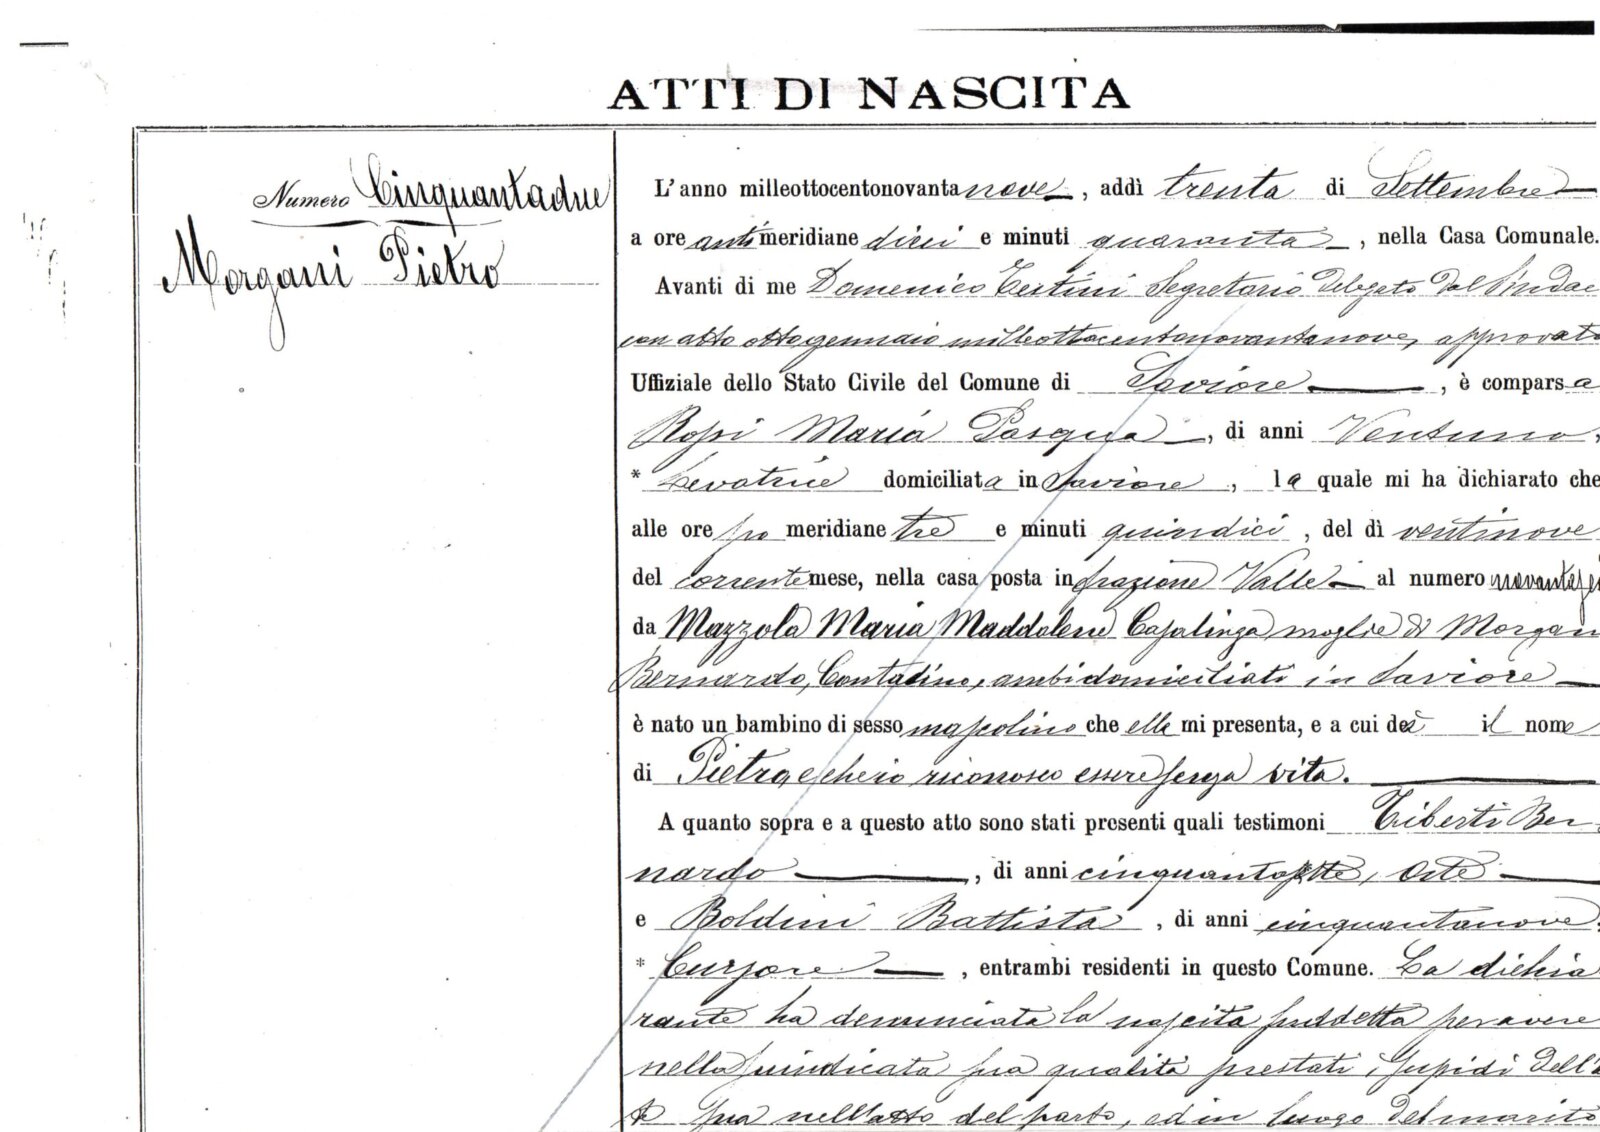 ATTI DI NASCITA
Numero Cinquantadue
Morgani Pietro
L'anno milleottocentonovanta nove, addì trenta di Settembre
a ore anti meridiane dieci e minuti quaranta, nella Casa Comunale.
Avanti di me Domenico Segretario delegato dal Sindac
con atto otto gennaio milleottocentonovantanove, approvato
Uffiziale dello Stato Civile del Comune di Saviore, è compars a
Rossi Maria Pasqua, di anni Ventuno,
* Levatrice domiciliata in Saviore, la quale mi ha dichiarato che
alle ore po meridiane tre e minuti quindici, del dì ventinove
del corrente mese, nella casa posta in frazione Valle al numero novantasei
da Mazzola Maria Maddalena Casalinga moglie di Morgan
Bernardo, Contadino, ambi domiciliati in Saviore
è nato un bambino di sesso mascolino che ella mi presenta, e a cui dà il nome
di Pietro, e che io riconosco essere senza vita.
A quanto sopra e a questo atto sono stati presenti quali testimoni Tiberti Ber-
nardo, di anni Oste
e Boldini Battista, di anni cinquantanove,
* Cursore, entrambi residenti in questo Comune. La dichia
rante ha denunciata la nascita suddetta per avere
nella suindicata sua qualità prestati i sussidi dell'
sua nell'atto del parto, ed in luogo del marito